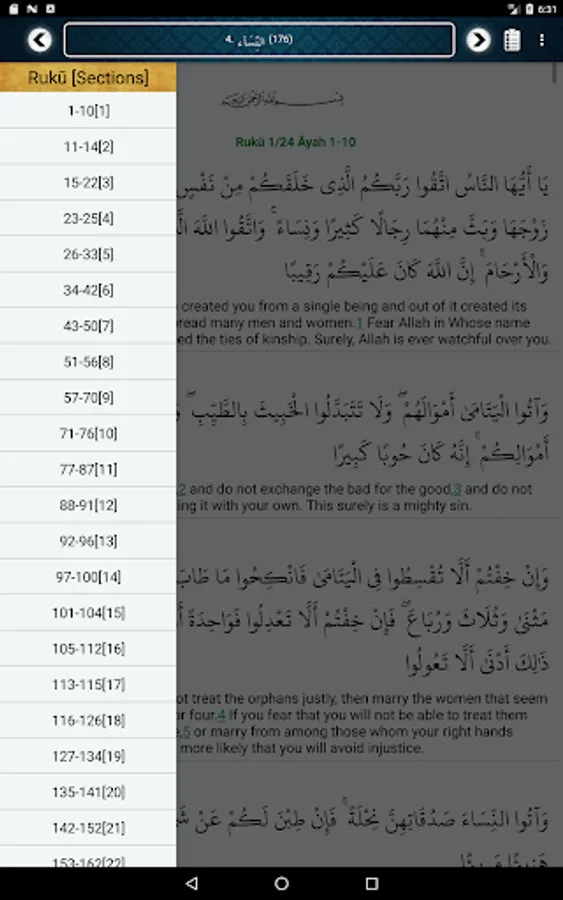 6:31
4. النِّسَاء (176)
Rukū [Sections]
1-10[1]
11-14[2]
15-22[3]
23-25[4]
26-33[5]
34-42[6]
43-50[7]
51-56[8]
57-70[9]
71-76[10]
77-87[11]
88-91[12]
92-96[13]
97-100[14]
101-104[15]
105-112[16]
113-115[17]
116-126[18]
127-134[19]
135-141[20]
142-152[21]
153-162[22]
Rukū 1/24 Āyah 1-10
يَا أَيُّهَا النَّاسُ اتَّقُوا رَبَّكُمُ الَّذِى خَلَقَكُمْ مِنْ نَفْسٍ
زَوْجَهَا وَبَثَّ مِنْهُمَا رِجَالًا كَثِيرًا وَنِسَاءً ۚ وَاتَّقُوا اللَّهَ
وَالْأَرْحَامَ ۚ إِنَّ اللَّهَ كَانَ عَلَيْكُمْ رَقِيبًا
created you from a single being and out of it created its
read many men and women.1 Fear Allah in Whose name
ed the ties of kinship. Surely, Allah is ever watchful over you.
وَآتُوا الْيَتَامَىٰ أَمْوَالَهُمْ ۖ وَلَا تَتَبَدَّلُوا الْخَبِيثَ بِالطَّيِّبِ ۖ
أَمْوَالِكُمْ ۚ إِنَّهُ كَانَ حُوبًا كَبِيرًا
2 and do not exchange the bad for the good,3 and do not
ing it with your own. This surely is a mighty sin.
وَإِنْ خِفْتُمْ أَلَّا تُقْسِطُوا فِى الْيَتَامَىٰ فَانْكِحُوا مَا طَابَ
مَثْنَىٰ وَثُلَاثَ وَرُبَاعَ ۖ فَإِنْ خِفْتُمْ أَلَّا تَعْدِلُوا فَوَاحِدَةً
ذَٰلِكَ أَدْنَىٰ أَلَّا تَعُولُوا
ot treat the orphans justly, then marry the women that seem
or four.4 If you fear that you will not be able to treat them
e,5 or marry from among those whom your right hands
more likely that you will avoid injustice.
وَآتُوا النِّسَاءَ صَدُقَاتِهِنَّ نِحْلَةً ۚ فَإِنْ طِبْنَ لَكُمْ عَنْ